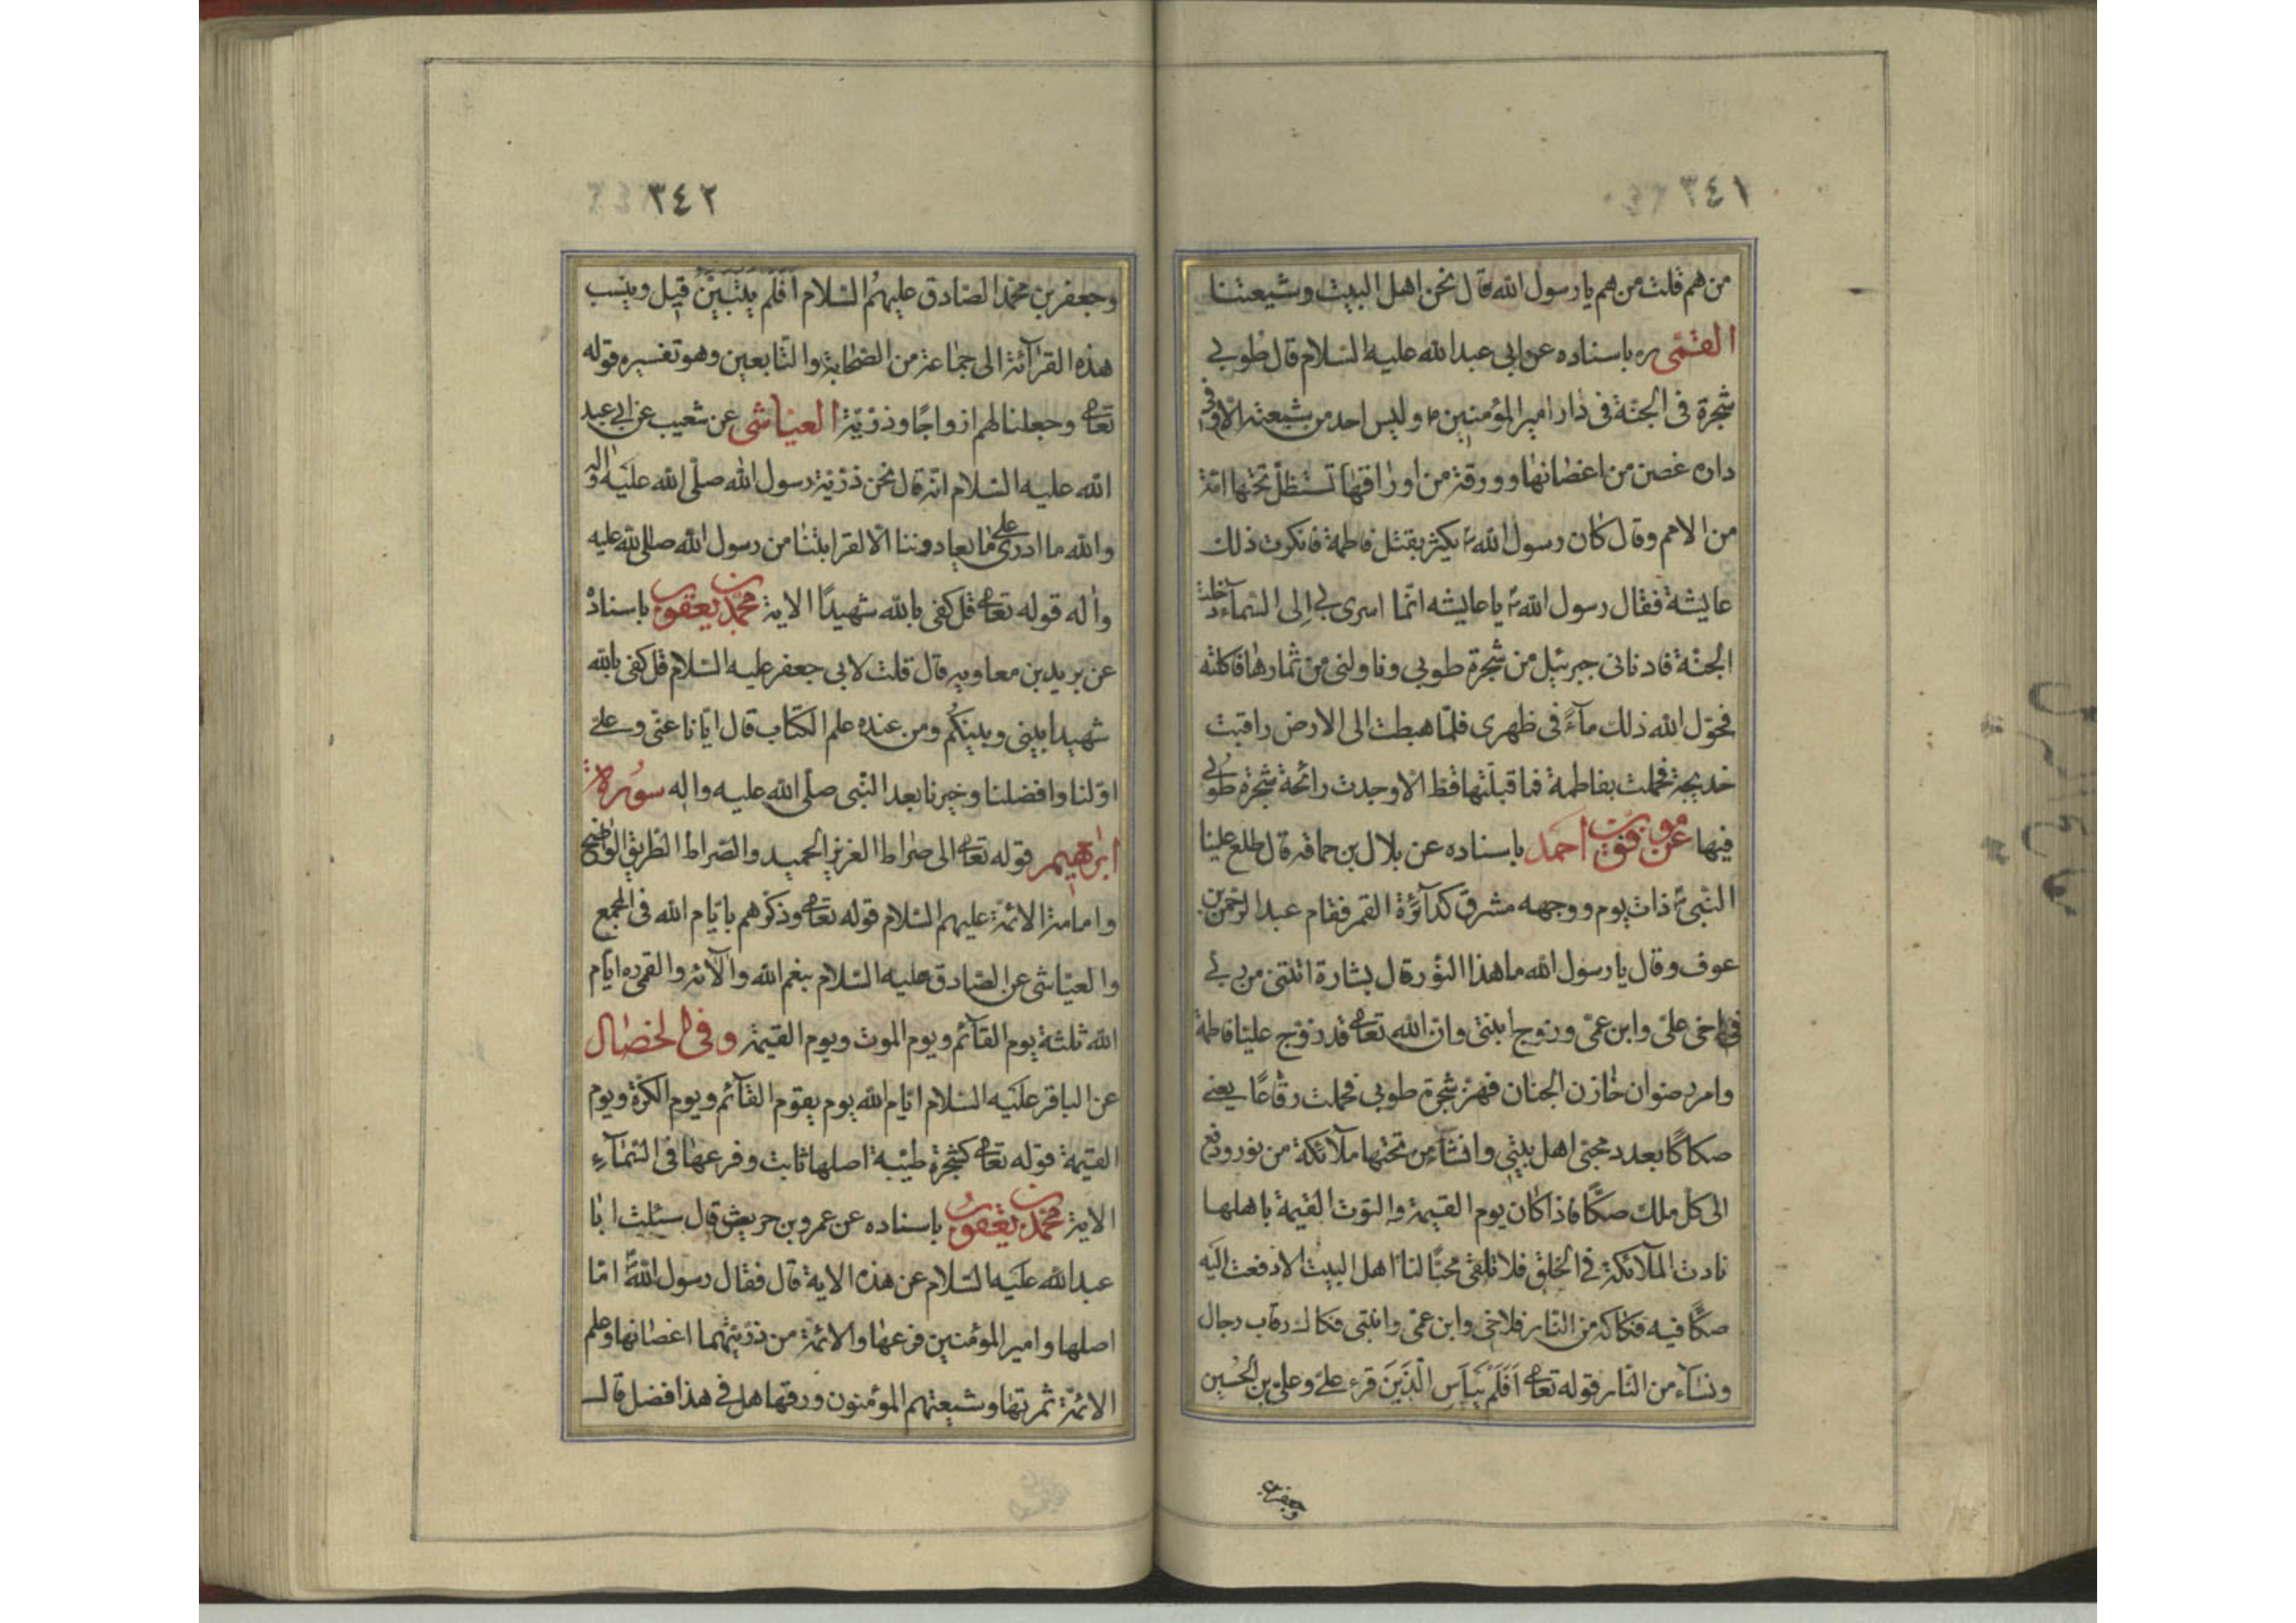 ٣٤١
من هم قلت من هم يا رسول الله قال نحن اهل البيت وشيعتنا
القمّى ره باسناده عن ابى عبدالله عليه السّلام قال طوبى
شجرة فى الجنّة فى دار امير المؤمنين ٤ وليس احد من شيعته الّا وفى
داره غصن من اغصانها وورقة من اوراقها تستظلّ تحتها امّة
من الامم وقال كان رسول الله ص يكثر بقتثل فاطمة فانكرت ذلك
عايشة فقال رسول الله ص يا عايشه انّما اسرى بى الى السّماء دخلت
الجنّة فادنانى جبرئيل من شجرة طوبى وناولنى من ثمارها فاكلته
فحوّل الله ذلك مآءً فى ظهرى فلمّا هبطت الى الارض راقبت
خديجة فحملت بفاطمة فما قبلتها قطّ الّا وجدت رائحة شجرة طوبى
فيها عن موفق بن احمد باسناده عن بلال بن حماقه قال طلع علينا
النّبى ص ذات يوم ووجهه مشرق كدآئرة القمر فقام عبد الرّحمن بن
عوف وقال يا رسول الله ما هذا النّور قال بشارة اتتنى من ربّى
فى اخى علىّ وابن عمّى وزوج ابنتى وان الله تعالى قد زوّج عليّا فاطمة
وامر رضوان خازن الجنان فهزّ شجرة طوبى فحملت رقاعًا يعنى
صكاكًا بعدد محبّى اهل بيتى وانشأ من تحتها ملآئكة من نور ودفع
الى كل ملك صكًّا فاذا كان يوم القيمة والتوت القيمة باهلها
نادت الملآئكة فى الخلق فلا تلقى محبًّا لنا اهل البيت الّا دفعت اليه
صكًّا فيه فكاكه من النّار فلاخى وابن عمّى وابنتى فكاك رقاب رجال
ونسآء من النّار قوله تعالى اَفَلَمْ يَيْاَسِ الَّذينَ قرء علىّ وعلىّ بن الحسين
وجعفر بن
٣٤٢
وجعفر بن محمّد الصّادق عليهم السّلام اَفَلَم يتبيّن قيل وينسب
هذه القرآئة الى جماعة من الصّحابة والتّابعين وهو تفسيره قوله
تعالى وجعلنا لهم ازواجًا وذرّيّة العيّاشى عن شعيب عن ابى عبد
الله عليه السّلام انّه قال نحن ذرّيّة رسول الله صلّى الله عليه واله
والله ما ادرى على ما يعادوننا الّا لقرابتنا من رسول الله صلى الله عليه
واله قوله تعالى قل كفى بالله شهيدًا الاية محمّد بن يعقوب باسناده
عن بريد بن معاويه قال قلت لابى جعفر عليه السّلام قل كفى بالله
شهيدا بينى وبينكم ومن عنده علم الكتاب قال ايّانا عنى وعلىّ
اوّلنا وافضلنا وخيرنا بعد النّبى صلّى الله عليه واله سورة
ابرٰهيم قوله تعالى الى صراط العزيز الحميد والصّراط الطّريق الواضح
وامامة الائمّة عليهم السّلام قوله تعالى وذكّرهم بايّام الله فى المجمع
والعيّاشى عن الصّادق عليه السّلام بنعم الله والآئه والقمى ره ايّام
الله ثلثة يوم القآئم ويوم الموت ويوم القيمة وفى الخصال
عن الباقر عليه السّلام ايّام الله يوم يقوم القآئم ويوم الكرّة ويوم
القيمة قوله تعالى كشجرة طيّبة اصلها ثابت وفرعها فى السّمآء
الاية محمّد بن يعقوب باسناده عن عمرو بن حريث قال سئلت ابا
عبدالله عليه السّلام عن هذه الاية قال فقال رسول الله ص انا
اصلها وامير المؤمنين فرعها والائمّة من ذرّيّتهما اغصانها وعلم
الائمّة ثمرتها وشيعتهم المؤمنون ورقها هل فى هذا فضل قال